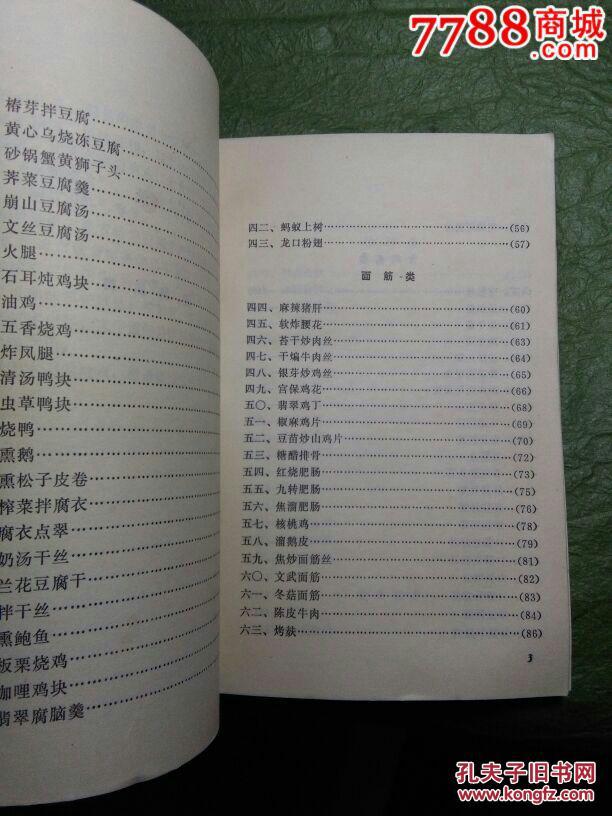 7788商城
.com
椿芽拌豆腐
黄心乌烧冻豆腐
砂锅蟹黄狮子头
荠菜豆腐羹
崩山豆腐汤
文丝豆腐汤
火腿
石耳炖鸡块
油鸡
五香烧鸡
炸凤腿
清汤鸭块
虫草鸭块
烧鸭
熏鹅
熏松子皮卷
榨菜拌腐衣
腐衣点翠
奶汤干丝
兰花豆腐干
拌干丝
熏鲍鱼
板栗烧鸡
咖哩鸡块
翡翠腐脑羹
四二、蚂蚁上树(56)
四三、龙口粉翅(57)
面筋类
四四、麻辣猪肝(60)
四五、软炸腰花(61)
四六、苔干炒肉丝(63)
四七、干煸牛肉丝(64)
四八、银芽炒鸡丝(66)
四九、宫保鸡花(66)
五〇、翡翠鸡丁(68)
五一、椒麻鸡片(69)
五二、豆苗炒山鸡片(70)
五三、糖醋排骨(72)
五四、红烧肥肠(73)
五五、九转肥肠(75)
五六、焦溜肥肠(76)
五七、核桃鸡(78)
五八、溜鹅皮(79)
五九、焦炒面筋丝(81)
六〇、文武面筋(82)
六一、冬菇面筋(83)
六二、陈皮牛肉(84)
六三、烤麸(86)
3
孔夫子旧书网
www.kongfz.com